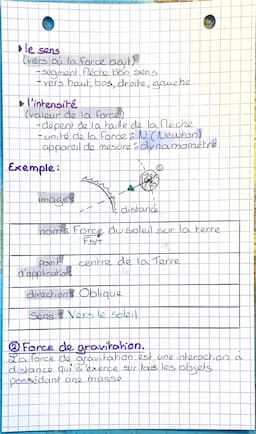 ▸ le sens
(vers où la force agit)
- segment fléché bon sens
- vers haut, bas, droite, gauche
▸ l'intensité
(valeur de la force)
- dépent de la taille de la flèche
- unité de la force : N (Newton)
appareil de mesure : dynamomètre
Exemple :
image
distance
nom : Force du soleil sur la terre
point d'application
centre de la Terre
direction : Oblique
Sens : Vers le soleil
② Force de gravitation.
La force de gravitation est une interaction à
distance qui s'exerce sur tous les objets
possédant une masse